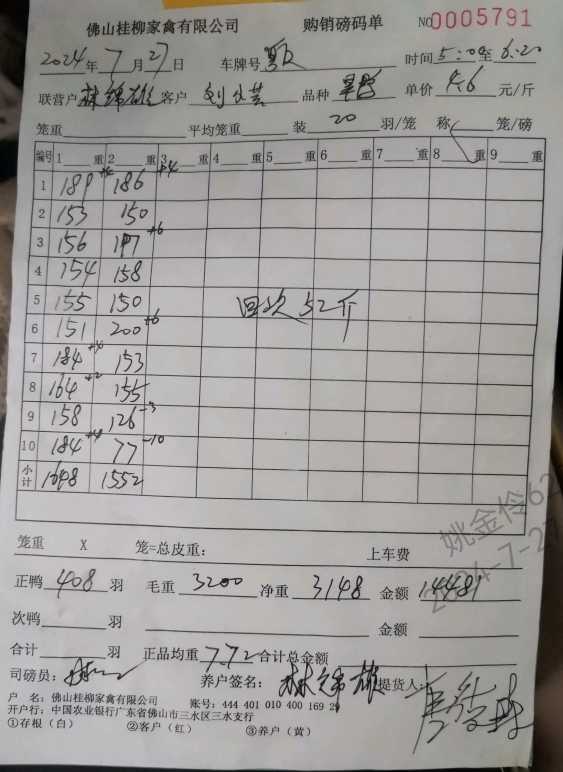 佛山桂柳家禽有限公司 购销磅码单 NO 0005791
2024年7月27日 车牌号 时间5:00至6:20
联营户 林锦雄 客户 刘 品种 单价 4.6 元/斤
笼重 平均笼重 装 20 羽/笼 称 笼/磅
编号 1 重 2 重 3 重 4 重 5 重 6 重 7 重 8 重 9 重
1 189 186 +4
2 153 150
3 156 +6
4 154 158
5 155 150 回次 52斤
6 151 200 +6
7 184 +4 153
8 164 +2 155
9 158 126 -3
10 184 +4 77 -10
小计 1648 1552
笼重 X 笼=总皮重： 上车费
正鸭 408 羽 毛重 3200 净重 3148 金额 14481
次鸭 羽 金额
合计 羽 正品均重 7.72 合计总金额
司磅员： 养户签名： 林锦雄 提货人：
户 名：佛山桂柳家禽有限公司 账号：444 401 010 400 169 29
开户行：中国农业银行广东省佛山市三水区三水支行
①存根（白） ②客户（红） ③养户（黄）
姚金伶62
2024-7-27